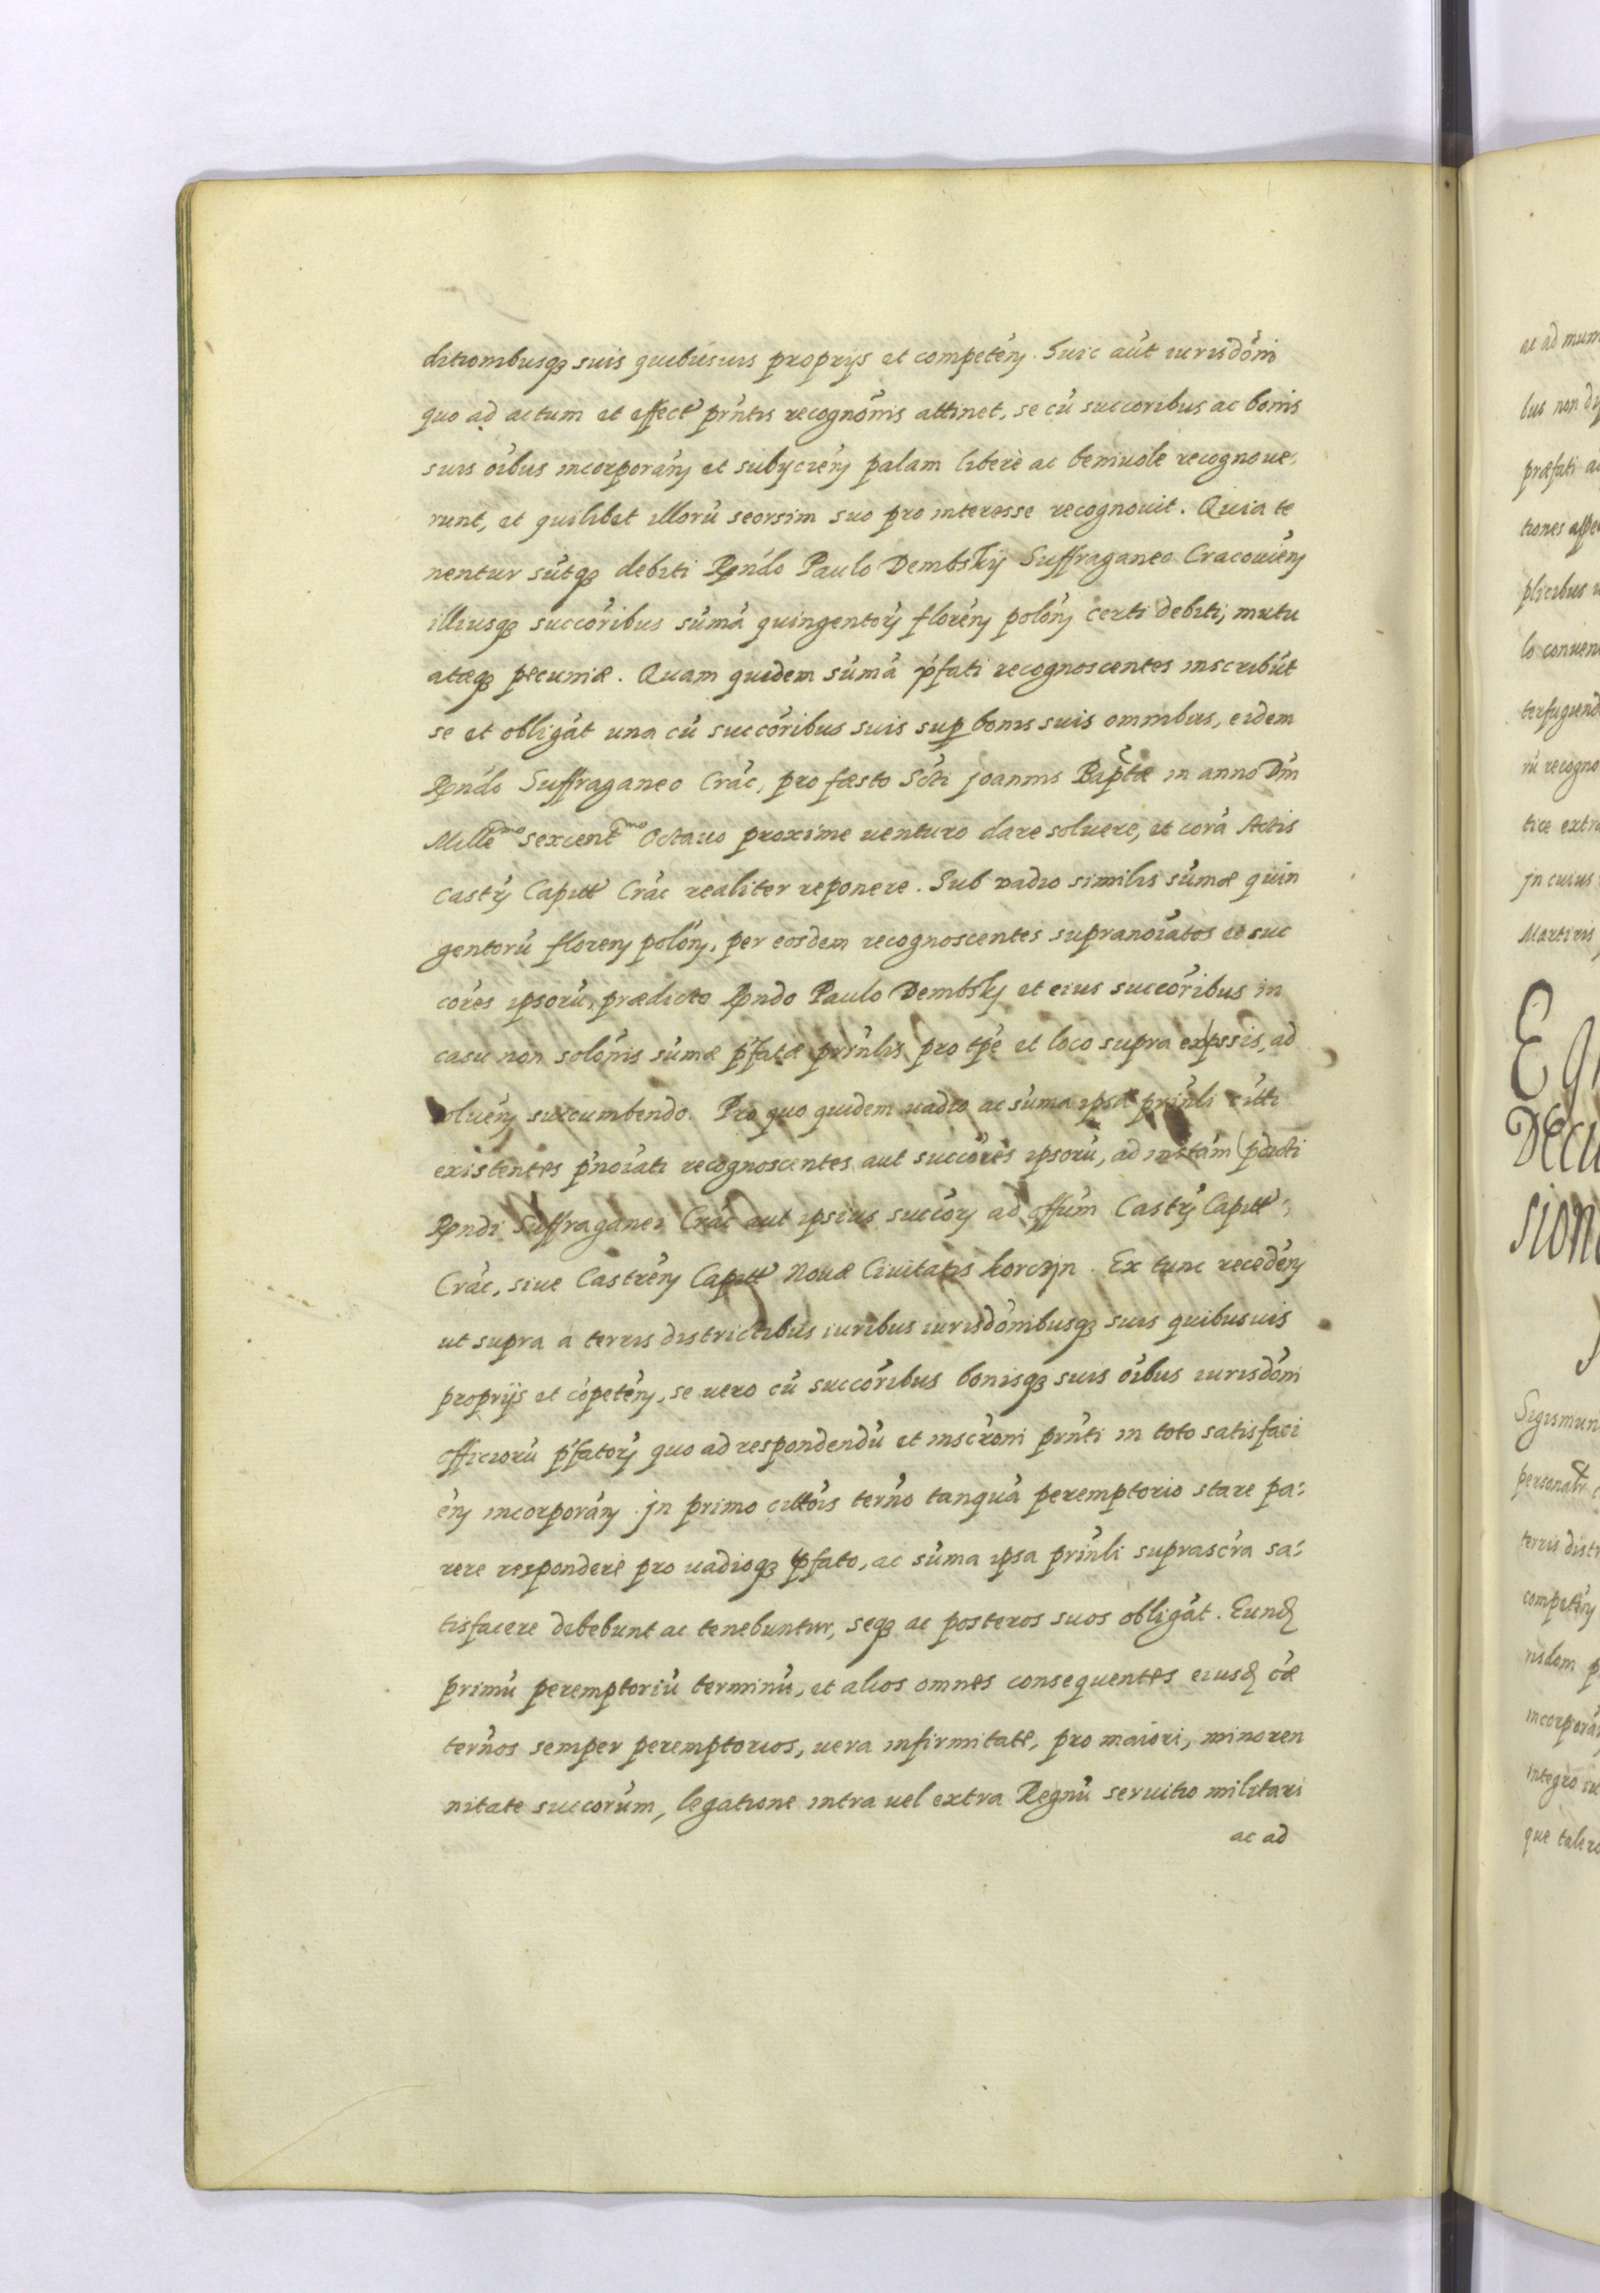 ditiombusq3 suis quibusuis proprijs et competen̄. Huic aūt iurisdōni
quo ad actum et effect' prn̄tis recognōnis attinet, se cū succoribus ac bonis
suis oībus incorporan̄ et subijcien̄ palam liberè ac beniuole recognoue,
runt, et quilibet illorū seorsim suo pro interesse recognouit. Quia te
nentur sūtq3 debiti Rndo Paulo Dembskÿ Suffraganeo Cracouien̄
illiusq3 succōribus sūmā quingentorꝝ floren̄ polon̄ certi debiti, mutu
atæq3 pecuniæ. Quam quidem sūmā pfati recognoscentes inscribūt
se et obligāt una cū succōribus suis sup bonis suis omnibus, eidem
Rndo Suffraganeo Crac, pro fæsto Scti Joannis Baptæ in anno Dni
Mille͠mo sexcent͠mo Octauo proxime venturo dare soluere, et corā Actis
castrꝝ Capitt Crac realiter reponere. Sub vadio similis sūmæ quin
gentorū floren̄ polon̄, per eosdem recognoscentes supranoīatos et suc
cores ipsorū, prædicto Rndo Paulo Dembskj et eius succōribus in
casu non solōnis sūmæ pfatæ prīnlis, pro tpe et loco supra expssis, ad
soluen̄ succumbendo. Pro quo quidem uadio ac sūma ipsa prīnli citti
existentes pnoīati recognoscentes aut succōres ipsorū, ad instām pdicti
Rndi Suffraganei Crac aut ipsius succorꝝ ad offum Castrꝝ Capitt,
Crac, siue Castren̄ Capitt Nouæ Ciuitatis Korczÿn. Ex tunc receden̄
ut supra a terris districtibus iuribus iurisdōnibusq3 suis quibusuis
proprijs et cōpeten̄, se uero cū succōribus bonisq3 suis oībus iurisdōni
officiorū pfatorꝝ quo ad respondendū et inscrōni prn̄ti in toto satisfaci
en̄ incorporan̄. Jn primo cittōis terno tanquā peremptorio stare pa,
rere respondere pro uadioq3 pfato, ac sūma ipsa prīnli suprascra sa,
tisfacere debebunt ac tenebuntur, seq3 ac posteros suos obligāt. Eund
primū peremptoriū terminū, et alios omnes consequentes eiusd cæ
ternos semper peremptorios, uera infirmitate, pro maiori, minoren
nitate succorum, legatione intra uel extra Regnū seruitio militari
ac ad